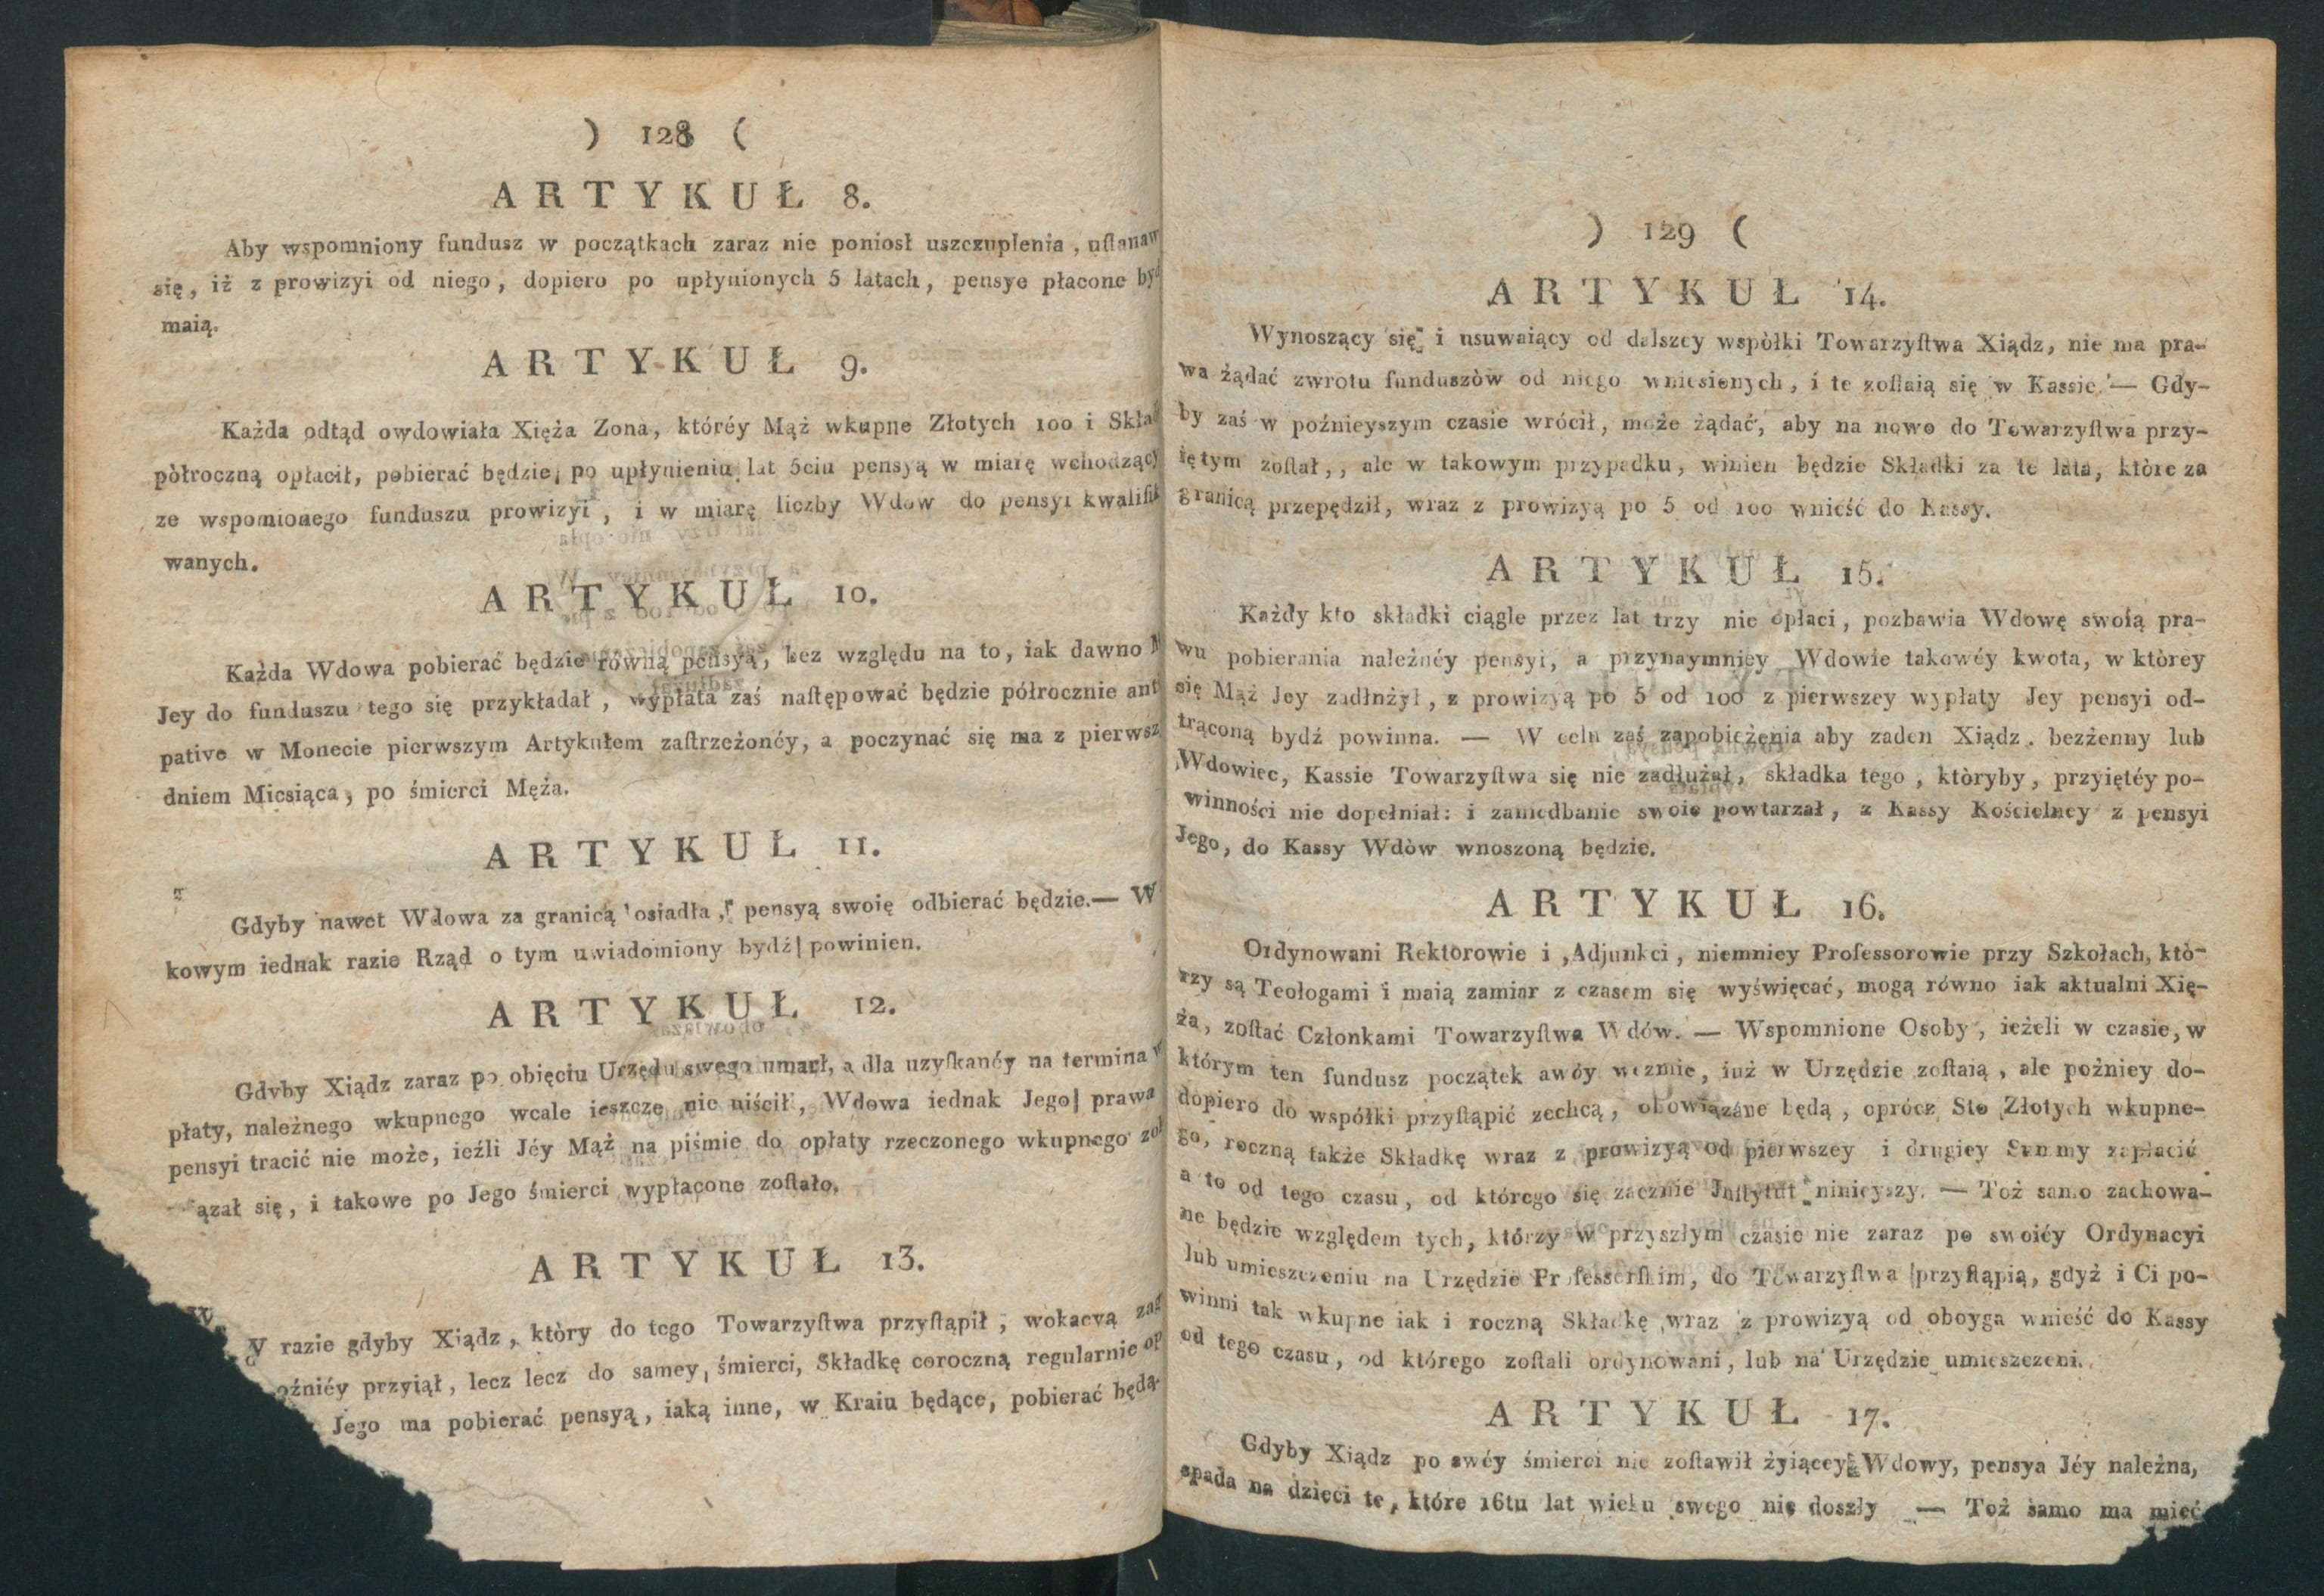 ) 128 (
ARTYKUŁ 8.
Aby wspomniony fundusz w początkach zaraz nie poniosł uszczuplenia, uſtanaw
się, iż z prowizyi od niego, dopiero po upłynionych 5 latach, pensye płacone byd
maią.
ARTYKUŁ 9.
Każda odtąd owdowiała Xięża Zona, któréy Mąż wkupne Złotych 100 i Skład
pòłroczną opłacił, pobierać będzie, po upłynieniu lat 5ciu pensyą w miarę wchodzący
ze wspomionego funduszu prowizyi, i w miarę liczby Wdow do pensyi kwalifik
wanych.
ARTYKUŁ 10.
Każda Wdowa pobierać będzie równą pensyą, bez względu na to, iak dawno M
Jey do funduszu tego się przykładał, wypłata zaś naſtępować będzie półrocznie ant
pative w Monecie pierwszym Artykułem zaſtrzeżonéy, a poczynać się ma z pierwsz
dniem Miesiąca, po śmierci Męża.
ARTYKUŁ 11.
Gdyby nawet Wdowa za granicą osiadła, pensyą swoię odbierać będzie.— W
kowym iednak razie Rząd o tym uwiadomiony bydź powinien.
ARTYKUŁ 12.
Gdyby Xiądz zaraz po obięciu Urzędu swego umarł, a dla uzyſkanéy na termina w
płaty, należnego wkupnego wcale ieszcze nie uiścił, Wdowa iednak Jego prawa
pensyi tracić nie może, ieźli Jéy Mąż na piśmie do opłaty rzeczonego wkupnego zob
ązał się, i takowe po Jego śmierci wypłacone zoſtało.
ARTYKUŁ 13.
W razie gdyby Xiądz, który do tego Towarzyſtwa przyſtąpił, wokacyą zag
oźniéy przyiął, lecz lecz do samey śmierci, Składkę coroczną regularnie op
Jego ma pobierać pensyą, iaką inne, w Kraiu będące, pobierać będą.
) 129 (
ARTYKUŁ 14.
Wynoszący się i usuwaiący od dalszey wspòłki Towarzyſtwa Xiądz, nie ma pra-
wa żądać zwrotu funduszòw od niego wniesionych, i te zoſtaią się w Kassie.— Gdy-
by zaś w poźnieyszym czasie wrócił, może żądać, aby na nowo do Towarzyſtwa przy-
iętym zoſtał,, ale w takowym przypadku, winien będzie Składki za te lata, które za
granicą przepędził, wraz z prowizyą po 5 od 100 wnieść do Kassy.
ARTYKUŁ 15.
Każdy kto składki ciągle przez lat trzy nie opłaci, pozbawia Wdowę swoią pra-
wu pobierania należnéy pensyi, a przynaymniey Wdowie takowéy kwota, w którey
się Mąż Jey zadłnżył, z prowizyą po 5 od 100 z pierwszey wypłaty Jey pensyi od-
trąconą bydź powinna. — W celu zaś zapobieżenia aby zaden Xiądz. bezżenny lub
Wdowiec, Kassie Towarzyſtwa się nie zadłużał, składka tego, któryby, przyiętéy po-
winności nie dopełniał: i zaniedbanie swoie powtarzał, z Kassy Kościelney z pensyi
Jego, do Kassy Wdòw wnoszoną będzie.
ARTYKUŁ 16.
Ordynowani Rektorowie i Adjunkci, niemniey Professorowie przy Szkołach, któ-
rzy są Teołogami i maią zamiar z czasem się wyświęcać, mogą równo iak aktualni Xię-
ża, zoſtać Członkami Towarzyſtwa Wdów. — Wspomnione Osoby, ieżeli w czasie, w
którym ten fundusz początek swóy weźmie, iuż w Urzędzie zoſtaią, ale poźniey do-
dopiero do współki przyſtąpić zechcą, obowiązane będą, oprócz Sto Złotych wkupne-
go, roczną także Składkę wraz z prowizyą od pierwszey i drugiey Summy zapłacić
a to od tego czasu, od którego się zacznie Inſtytut ninieyszy. — Toż samo zachowa-
ne będzie względem tych, którzy w przyszłym czasie nie zaraz po swoiéy Ordynacyi
lub umieszczeniu na Urzędzie Professorſkim, do Towarzyſtwa przyſtąpią, gdyż i Ci po-
winni tak wkupne iak i roczną Składkę wraz z prowizyą od oboyga wnieść do Kassy
od tego czasu, od którego zoſtali ordynowani, lub na Urzędzie umieszczeni.
ARTYKUŁ 17.
Gdyby Xiądz po swéy śmierci nie zoſtawił żyiącey Wdowy, pensya Jéy należna,
spada na dzieci te, które 16tu lat wieku swego nie doszły — Toż samo ma mieć